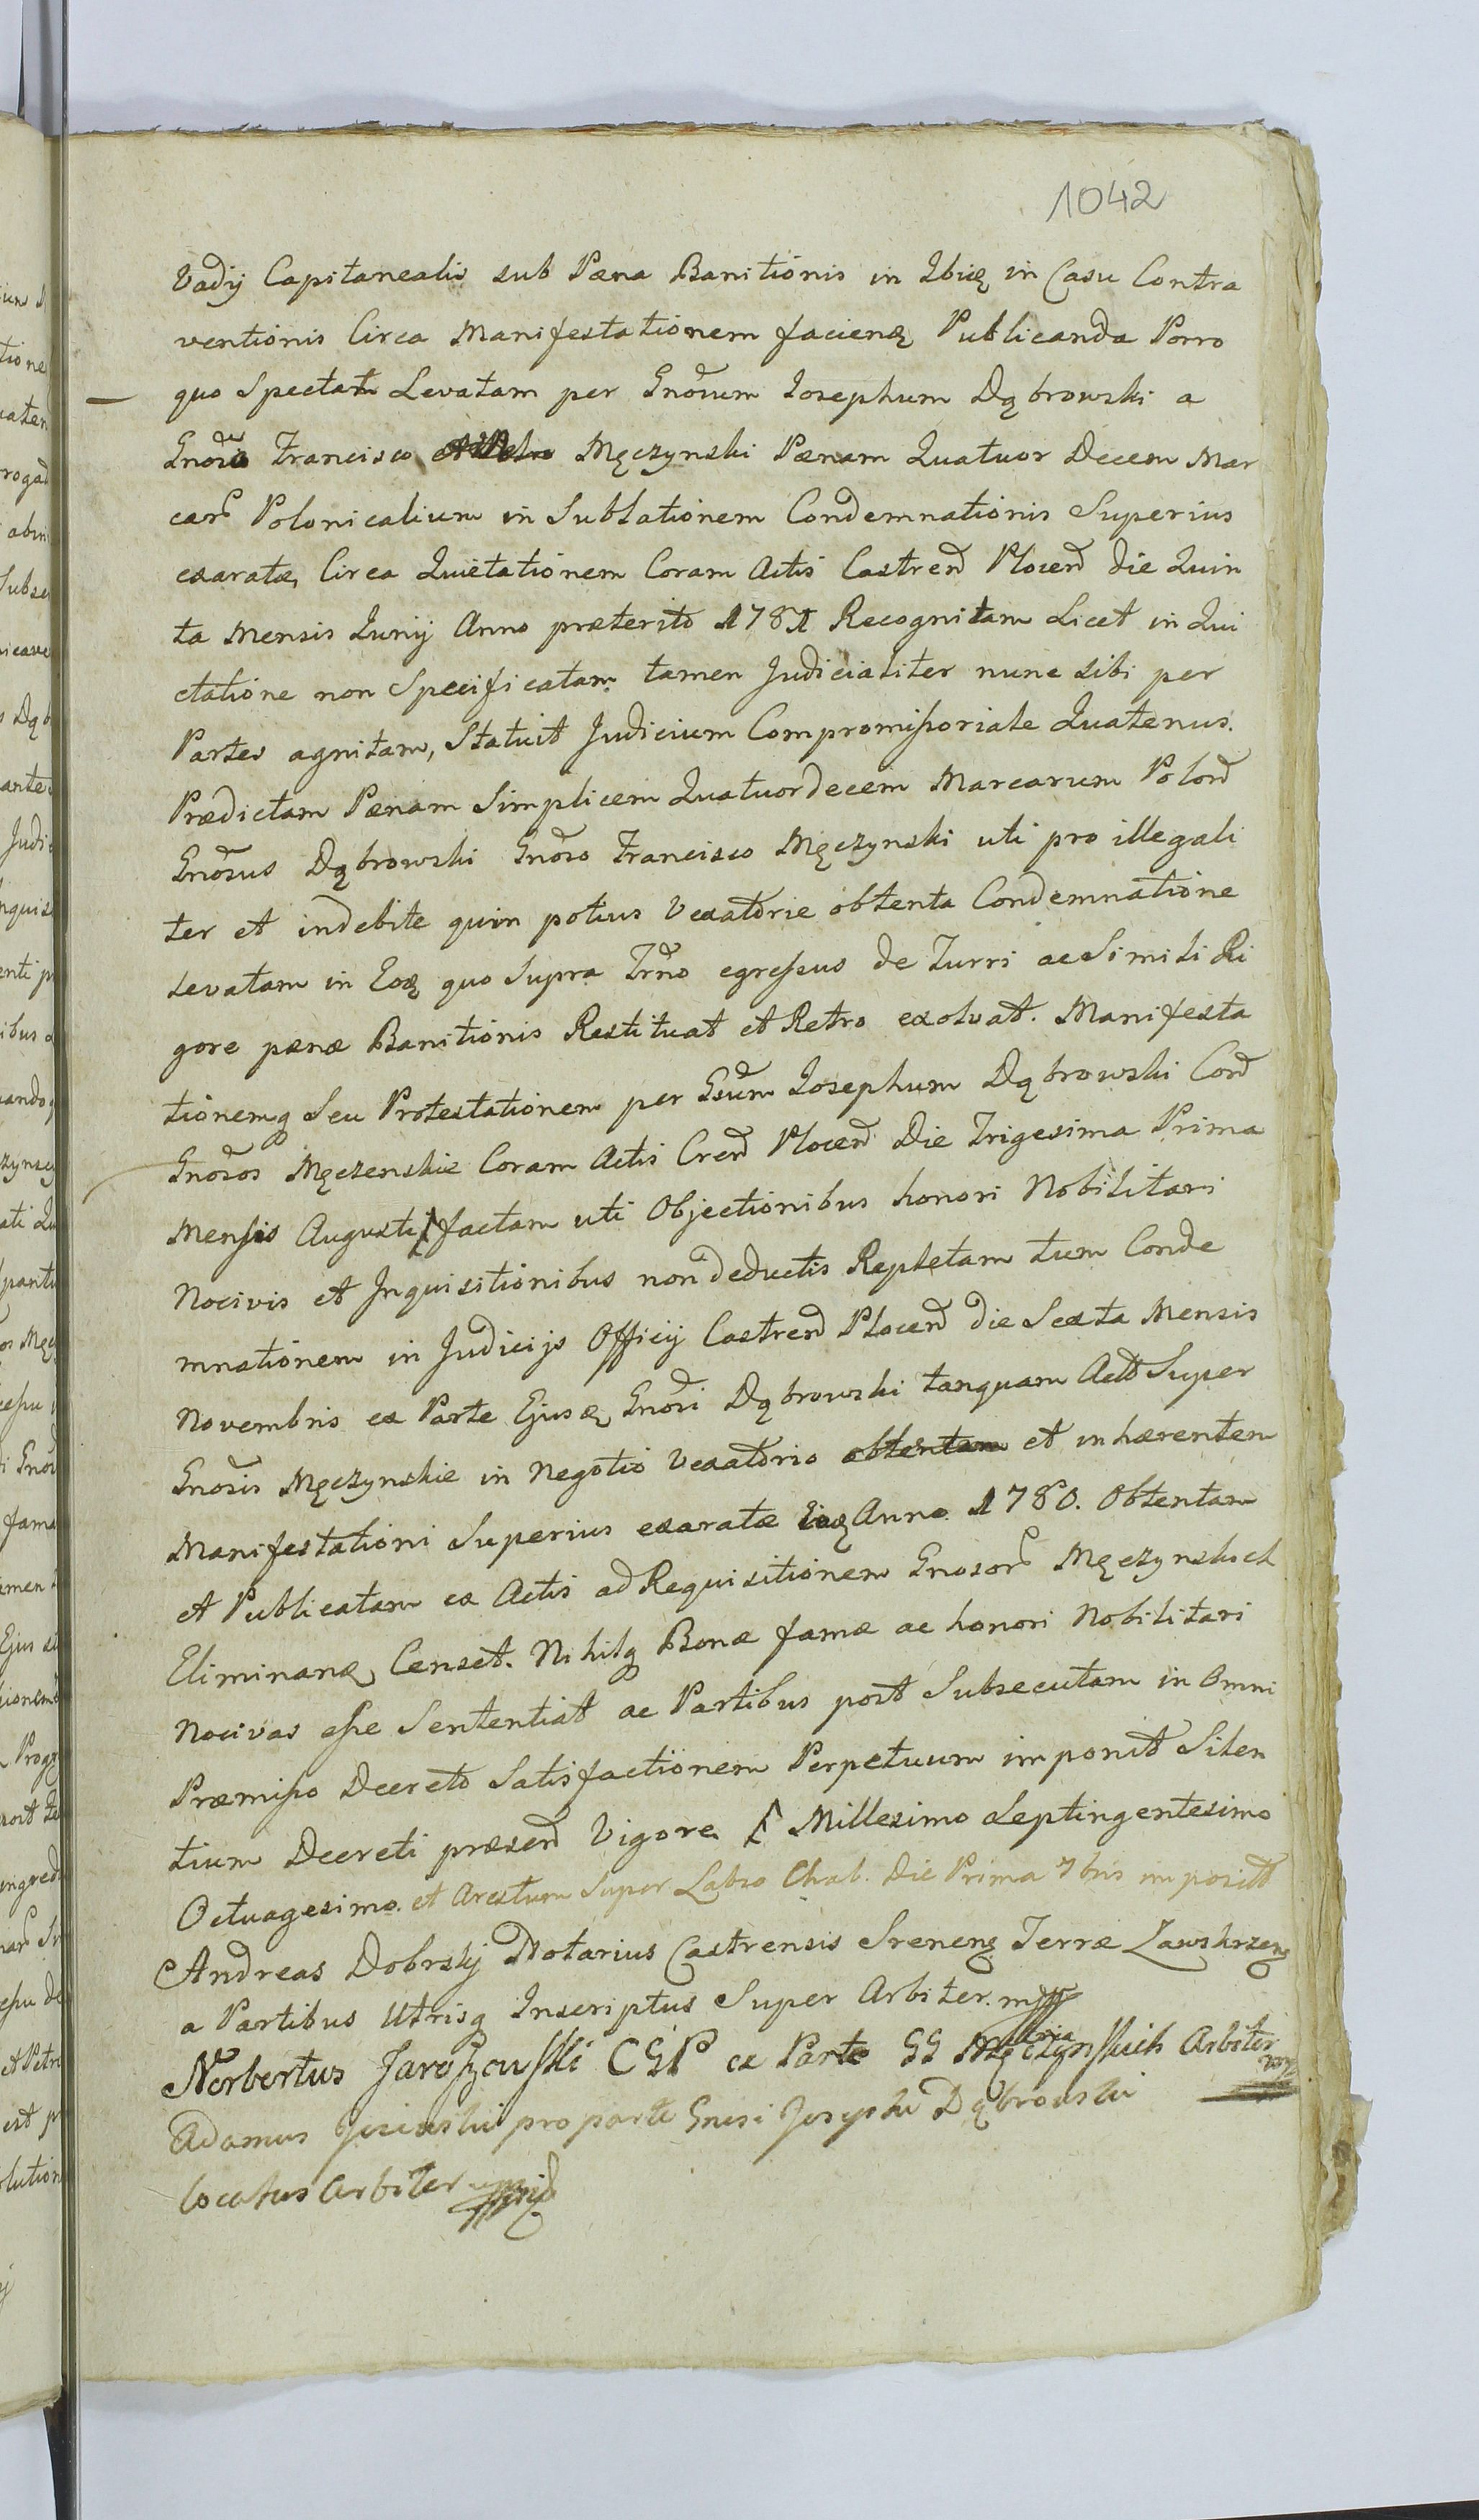 1042
Vadij Capitanealis sub Pæna Banitionis in Ibidq in Casu Contra
ventionis Circa Manifestationem faciendq Publicanda Porro
quo Spectat Levatam per Gnosum Josephum Dąbrowski a
Gnoso Francisco et Petro Męczynski Pænam Quatuor Decem Mar
car Polonicalium in Sublationem Condemnationis Superius
exaratæ, Circa Quietationem Coram Actis Castren Plocen die Quin
ta Mensis Junij Anno præterito 1781 Recognitam Licet in Qui
etatione non Specificatam tamen Judicialiter nunc sibi per
Partes agnitam, Statuit Judicium Compromissoriale Quatenus.
Prædictam Pænam Simplicem Quatuordecem Marcarum Polon
Gnosus Dąbrowski Gnoso Francisco Męczynski uti pro illegali
ter et indebite quin potius Vexatorie obtenta Condemnatione
Levatam in Eoq quo Supra Trno egressus de Turri ac Simili Ri
gore pænæ Banitionis Restituat et Retro exolvat. Manifesta
tionemq Seu Protestationem per Gsum Josephum Dąbrowski Con
Gnosos Męczenskie Coram Actis Cren Plocen Die Trigesima Prima
Mensis Augusti factam uti Objectionibus honori Nobilitari
Nocivis et Inquisitionibus non deductis Repletam tum Conde
mnationem in Judicijs Officij Castren Plocen die Sexta Mensis
Novembris ex Parte Ejusq Gnosi Dąbrowski tanquam Act Super
Gnosis Męczynskie in Negotio Vexatorio obtentam et inhærentem
Manifestationi Superius exaratæ Anno 1780. Obtentam
et Publicatam ex Actis ad Requisitionem Gnosor Męczynskich
Eliminanq Censet. Nihilq Bonæ famæ ac honori Nobilitari
Nocivas esse Sententiat ac Partibus post Subsecutam in Omni
Præmisso Decreto Satisfactionem Perpetuum imponit Silen
tium Decreti præsen Vigore Millesimo Septingentesimo
Octuagesimo. et Arestum Super Labro Chab. Die Prima 7bris imposit
Andreas Dobrskj Notarius Castrensis Srenenq Terræ Zawskrzenq
a Partibus Utrisq Inscriptus Super Arbiter. mpp
Norbertus Jaroszewski CGP ex Parte GG Męczynskich Arbiter
Adamus pro parte Gnosi Josephi Dąbrowski
locatus Arbiter mpp